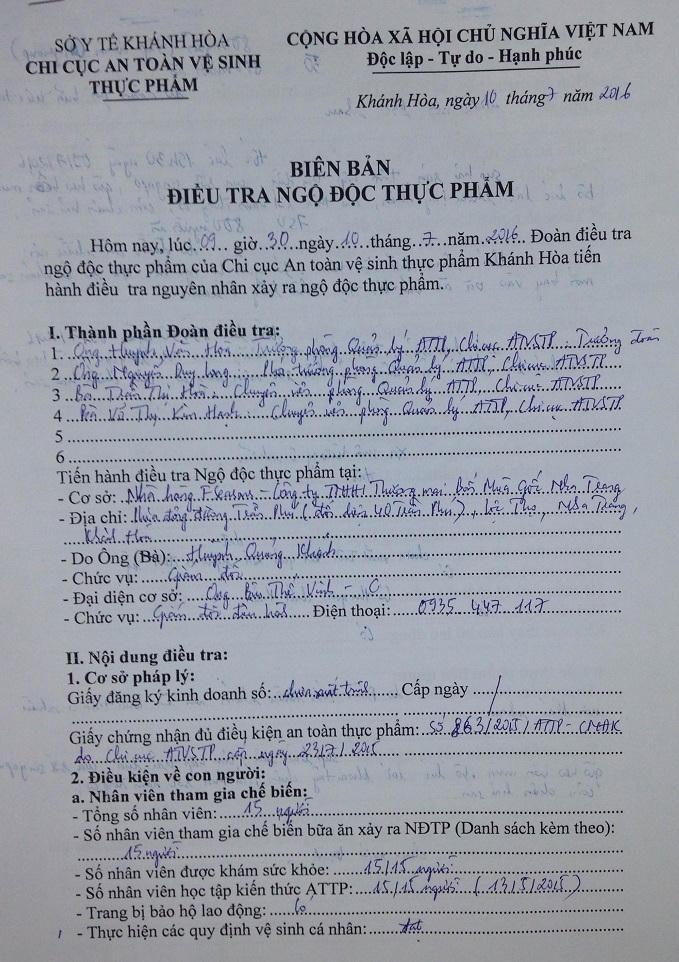 SỞ Y TẾ KHÁNH HÒA
CHI CỤC AN TOÀN VỆ SINH
THỰC PHẨM
CỘNG HÒA XÃ HỘI CHỦ NGHĨA VIỆT NAM
Độc lập - Tự do - Hạnh phúc
Khánh Hòa, ngày 10 tháng 7 năm 2016
BIÊN BẢN
ĐIỀU TRA NGỘ ĐỘC THỰC PHẨM
Hôm nay, lúc 09 giờ 30 ngày 10 tháng 7 năm 2016. Đoàn điều tra
ngộ độc thực phẩm của Chi cục An toàn vệ sinh thực phẩm Khánh Hòa tiến
hành điều tra nguyên nhân xảy ra ngộ độc thực phẩm.
I. Thành phần Đoàn điều tra:
1. Ông Huỳnh Văn Hoà Trưởng phòng Quản lý ATTP, Chi cục ATVSTP - Trưởng đoàn
2. Ông Nguyễn Duy Long Phó trưởng phòng Quản lý ATTP, Chi cục ATVSTP
3. Bà Trần Thị Hoà Chuyên viên phòng Quản lý ATTP, Chi cục ATVSTP
4. Võ Thị Kim Hạnh Chuyên viên phòng Quản lý ATTP, Chi cục ATVSTP
5
6
Tiến hành điều tra Ngộ độc thực phẩm tại:
- Cơ sở: Nhà hàng F.Seasons - Công ty TNHH Thương mại Bốn Mùa Gốc Nha Trang
- Địa chỉ: Phía đông đường Trần Phú (đối diện 40 Trần Phú), Lộc Thọ, Nha Trang,
Khánh Hoà
- Do Ông (Bà): Huỳnh Quang Khánh
- Chức vụ: Giám đốc
- Đại diện cơ sở: Ông Thế Vinh
- Chức vụ: Giám đốc Điện thoại: 0935 447 117
II. Nội dung điều tra:
1. Cơ sở pháp lý:
Giấy đăng ký kinh doanh số: chưa xuất trình Cấp ngày /
Giấy chứng nhận đủ điều kiện an toàn thực phẩm: Số 863/2015/ATTP-CNĐK
do Chi cục ATVSTP cấp ngày 23/7/2015
2. Điều kiện về con người:
a. Nhân viên tham gia chế biến:
- Tổng số nhân viên: 15 người
- Số nhân viên tham gia chế biến bữa ăn xảy ra NĐTP (Danh sách kèm theo):
15 người
- Số nhân viên được khám sức khỏe: 15/15 người
- Số nhân viên học tập kiến thức ATTP: 15/15 người (13/5/2015)
- Trang bị bảo hộ lao động: Có
- Thực hiện các quy định vệ sinh cá nhân: đạt